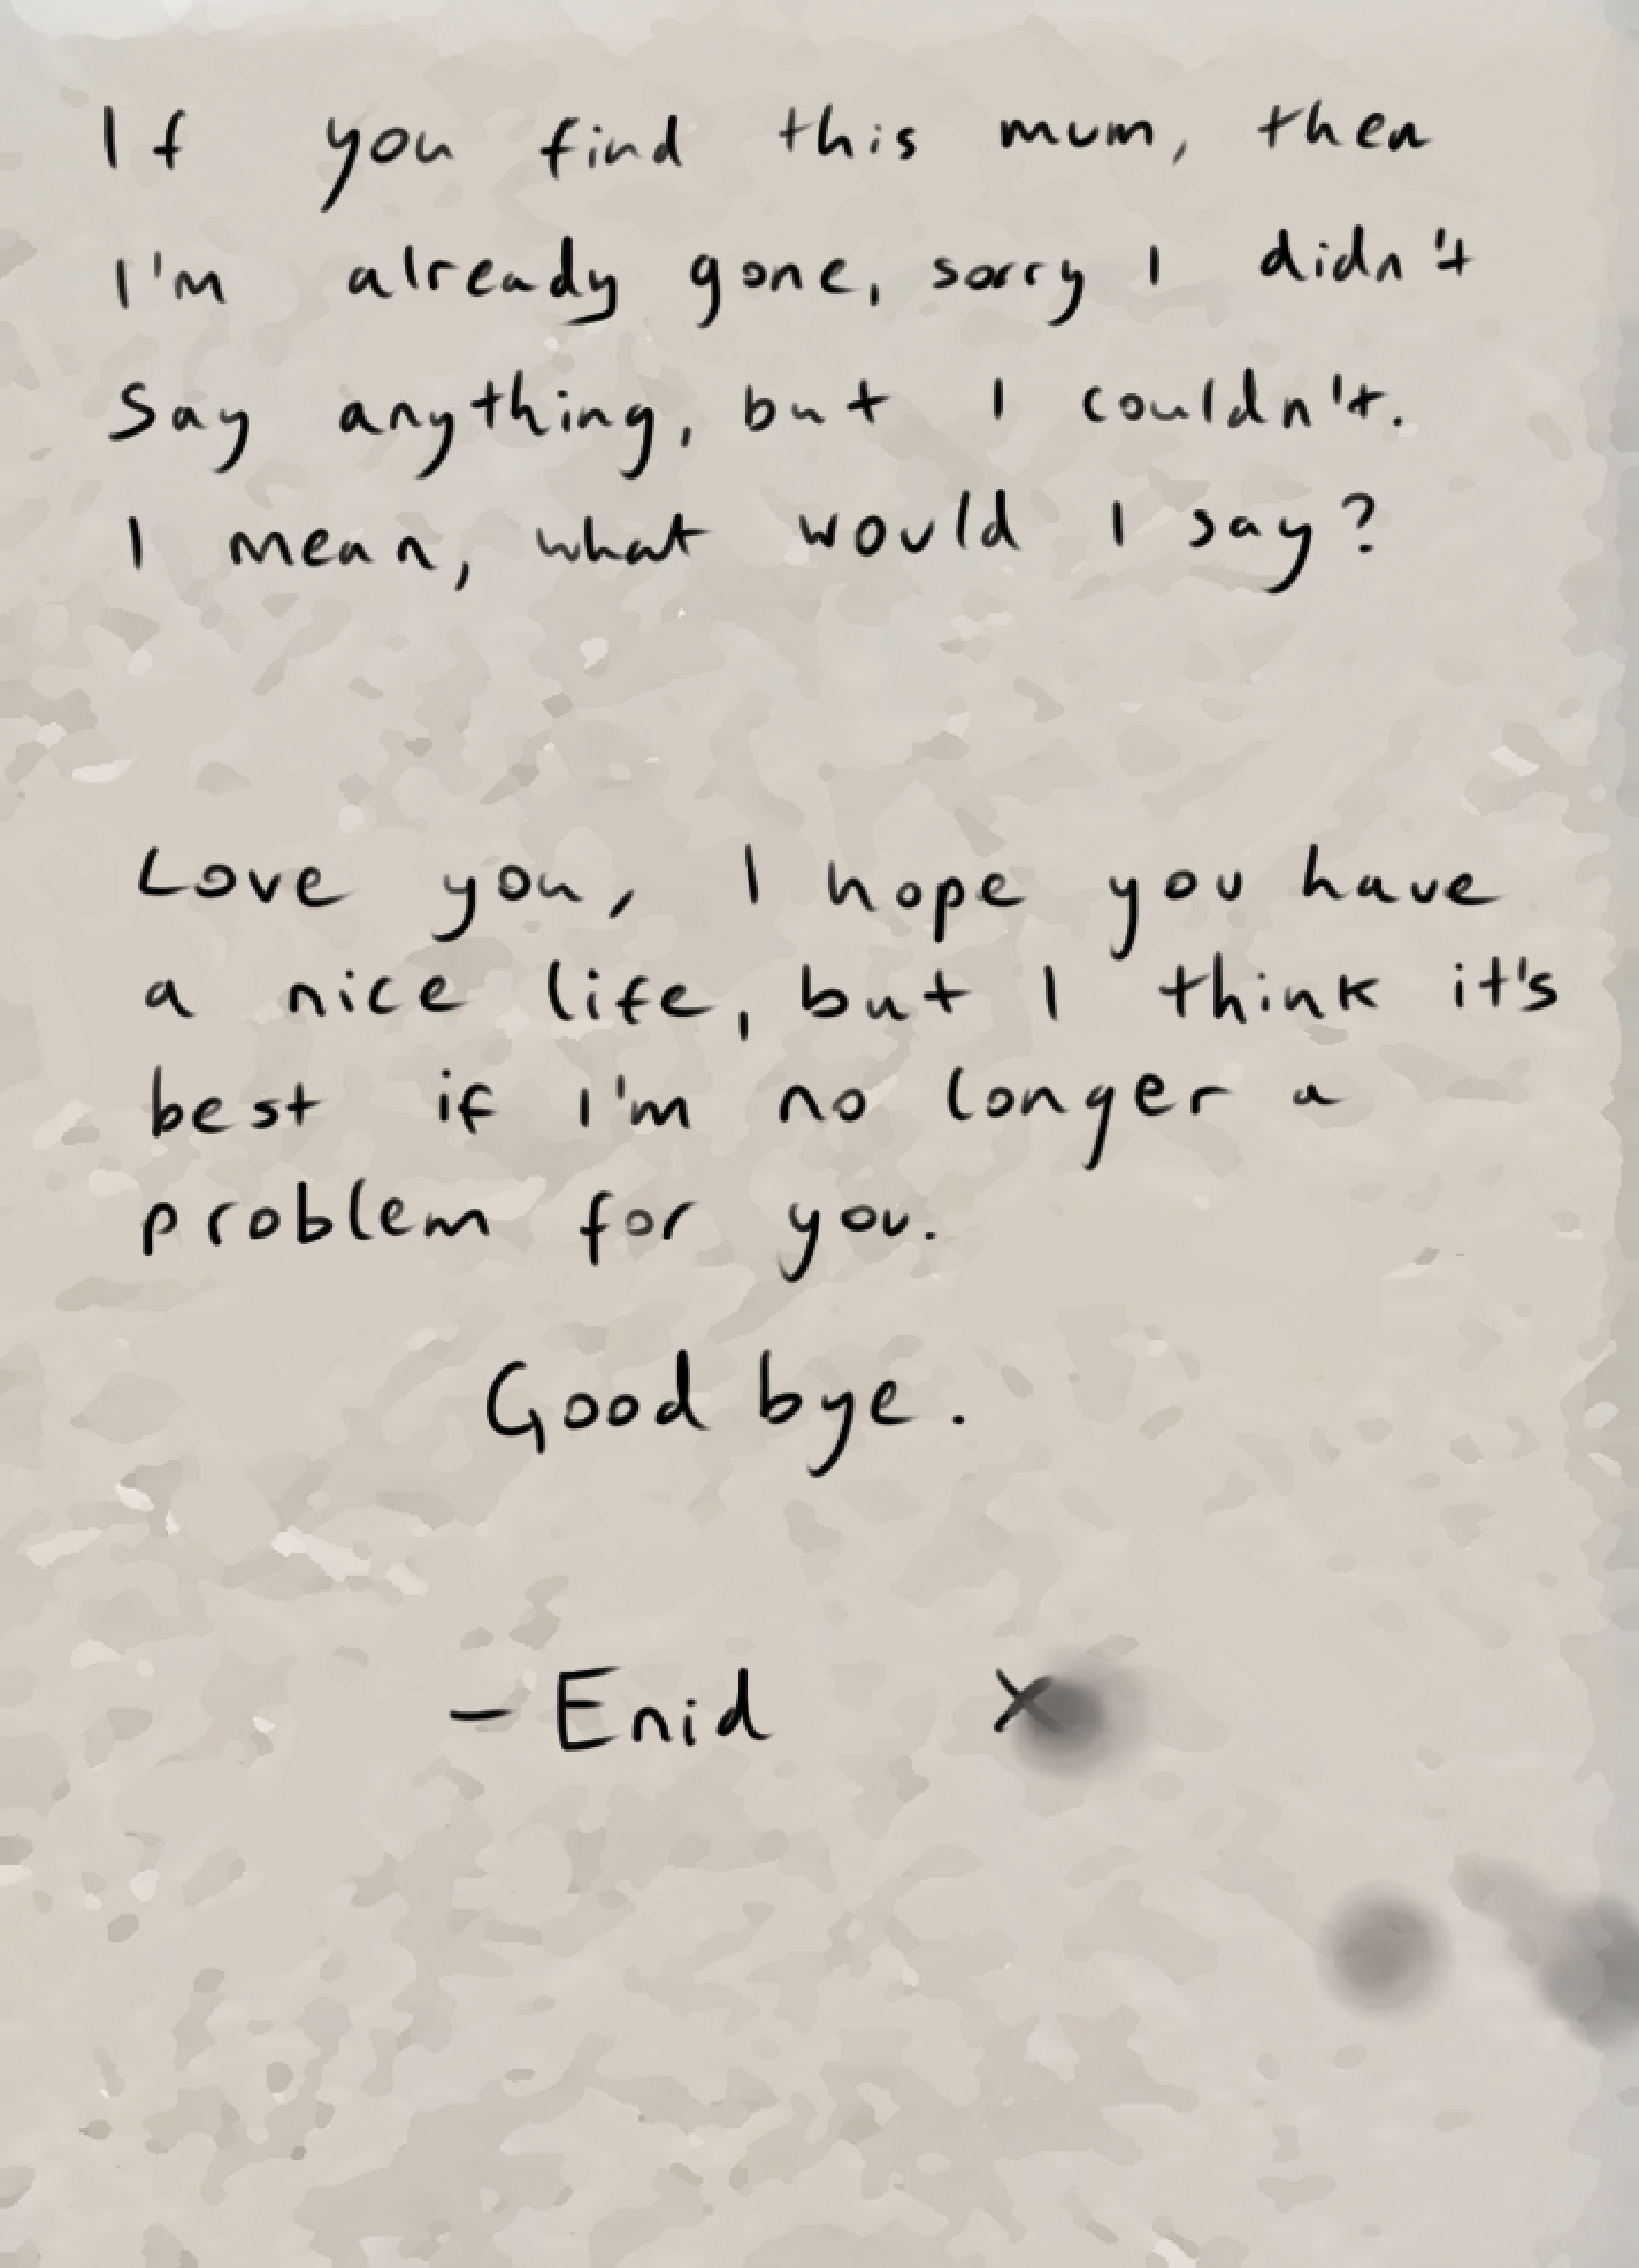 If you find this mum, then
I'm already gone, sorry I didn't
say anything, but I couldn't.
I mean, what would I say?
Love you, I hope you have
a nice life, but I think it's
best if I'm no longer a
problem for you.
Good bye.
- Enid x